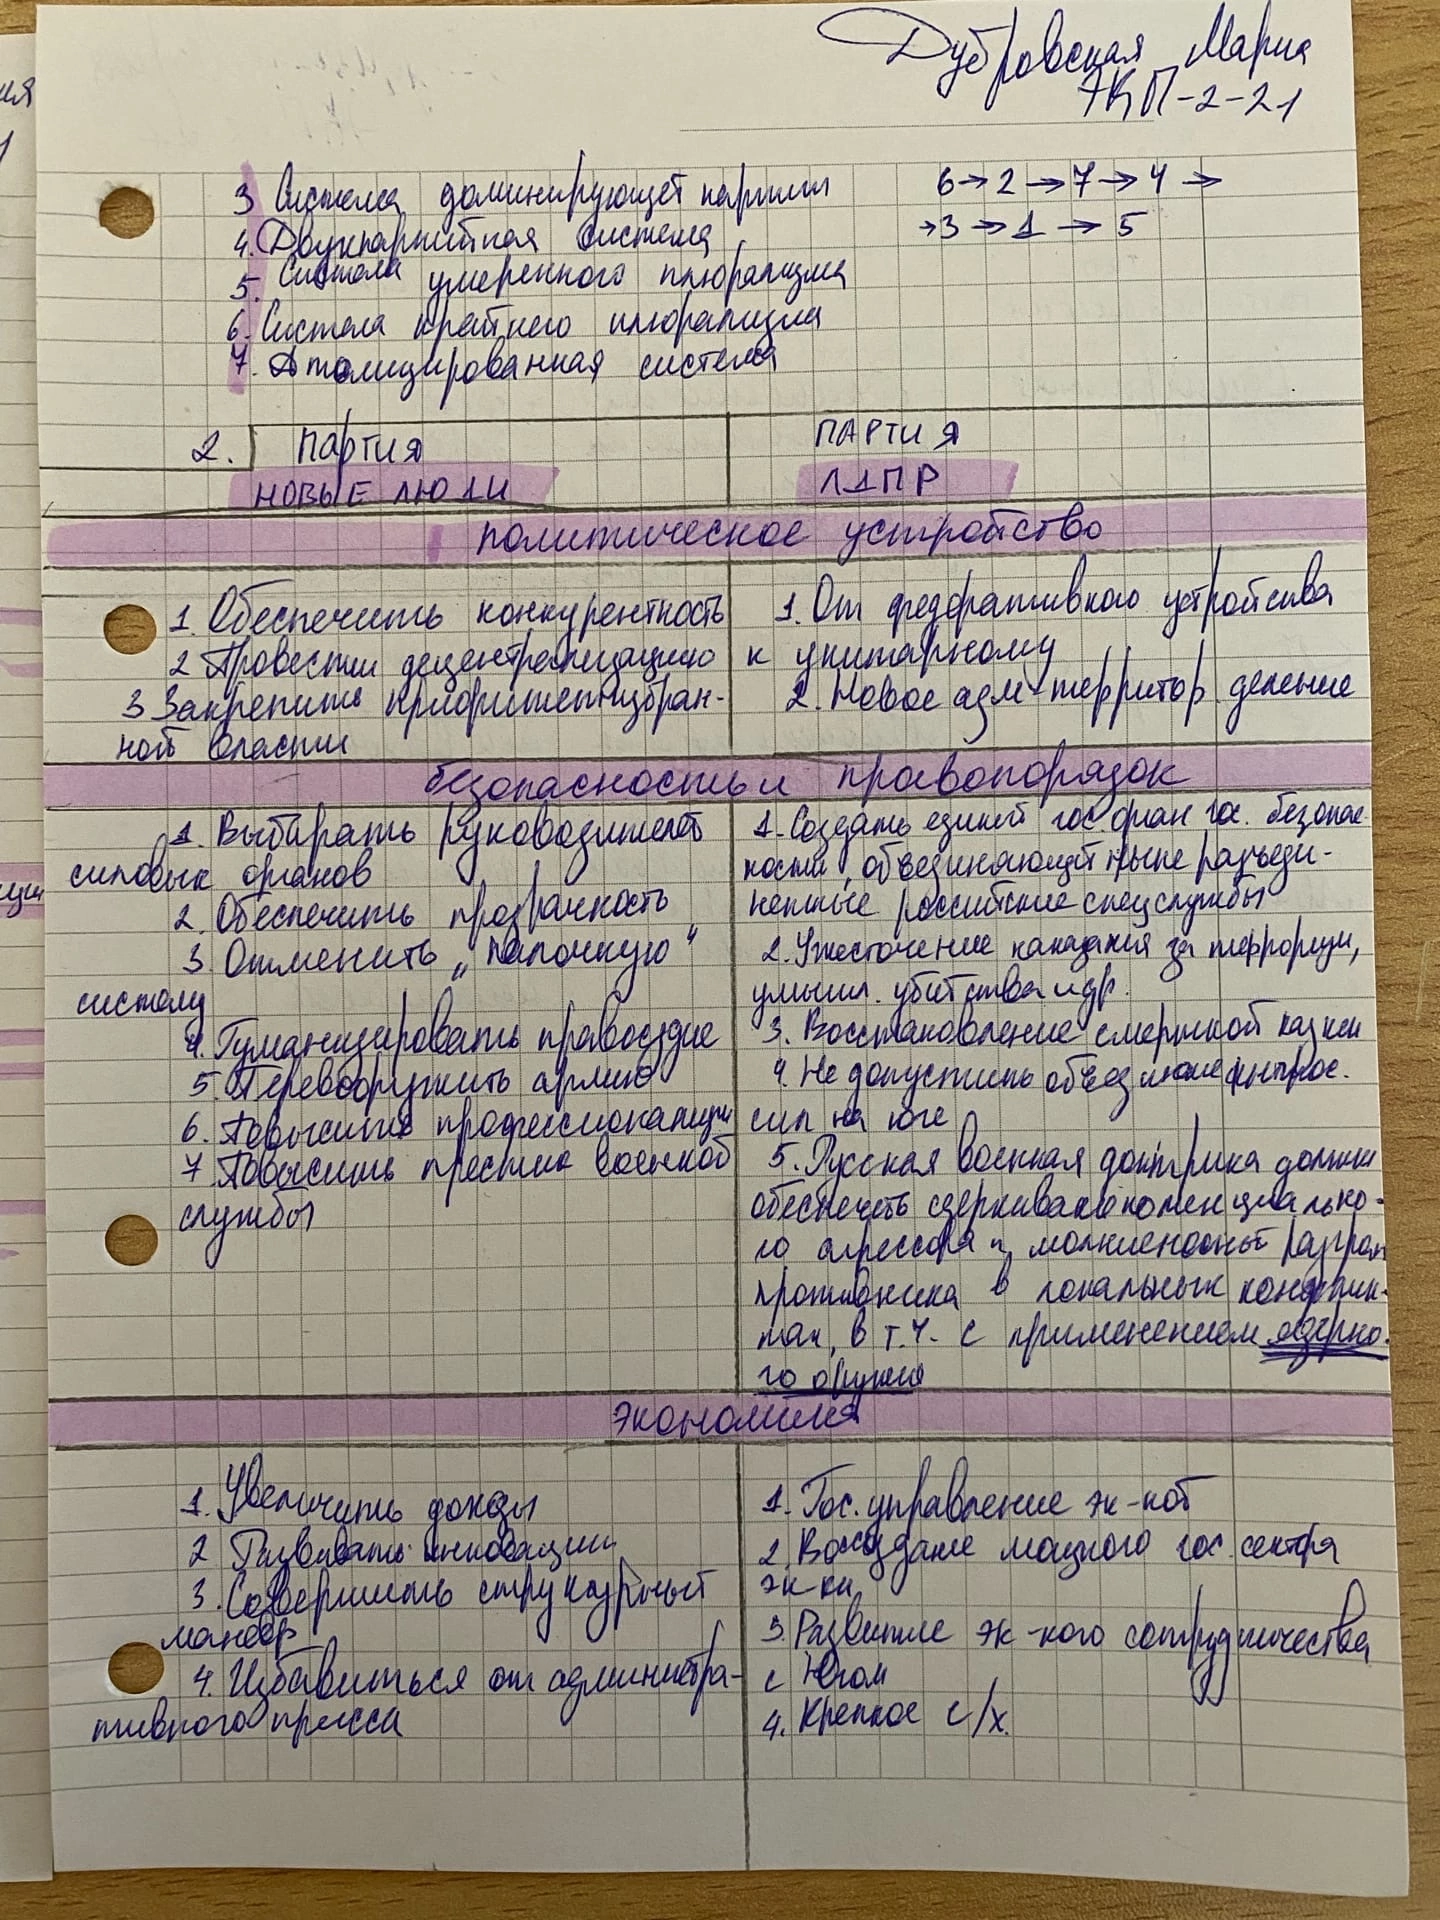 Дубровская Мария
ЭКП-2-21
3 Система доминирующей партии
4. Двухпартийная система
5. Система умеренного плюрализма
6. Система крайнего плюрализма
7. Атомизированная система
6→2→7→4→
→3→1→5
2. ПАРТИЯ
НОВЫЕ ЛЮДИ
ПАРТИЯ
ЛДПР
политическое устройство
1. Обеспечить конкурентность
2 Провести децентрализацию
3 Закрепить приоритет избран-
ной власти
1. От федеративного устройства
к унитарному
2. Новое адм-территор. деление
безопасность и правопорядок
1. Выбирать руководителей
силовых органов
2. Обеспечить прозрачность
3 Отменить „палочную“
систему
4. Гуманизировать правосудие
5. Перевооружить армию
6. Повысить профессионализм
7 Повысить престиж военной
службы
1. Создать единый гос. орган гос. безопас
ности, объединяющей ныне разъеди-
ненные российские спецслужбы
2. Ужесточение наказания за терроризм,
умышл. убийства и др.
3. Восстановление смертной казни
4. Не допустить объед
сил на юге
5. Русская военная доктрина должна
обеспечить сдерживание потенциально-
го агрессора и молниеносный разгром
противника в локальных конфлик-
тах, в т.ч. с применением ядерно-
го оружия
экономика
1. Увеличить доходы
2 Развивать инновации
3. Совершить структурный
маневр
4. Избавиться от администра-
тивного пресса
1. Гос. управление эк-кой
2. Воссоздание мощного гос. сектора
эк-ки
3. Развитие эк-кого сотрудничества
с Югом
4. Крепкое с/х.